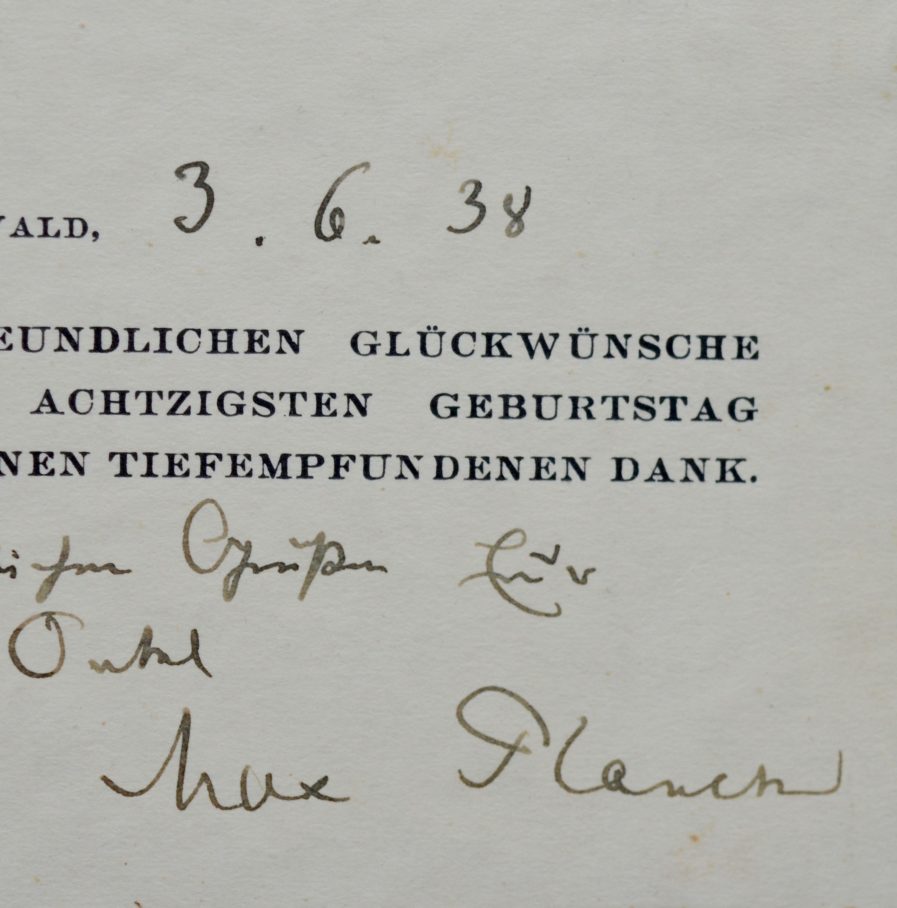 WALD, 3. 6. 38
EUNDLICHEN GLÜCKWÜNSCHE
ACHTZIGSTEN GEBURTSTAG
NEN TIEFEMPFUNDENEN DANK.
Grüßen Euer
Onkel
Max Planck